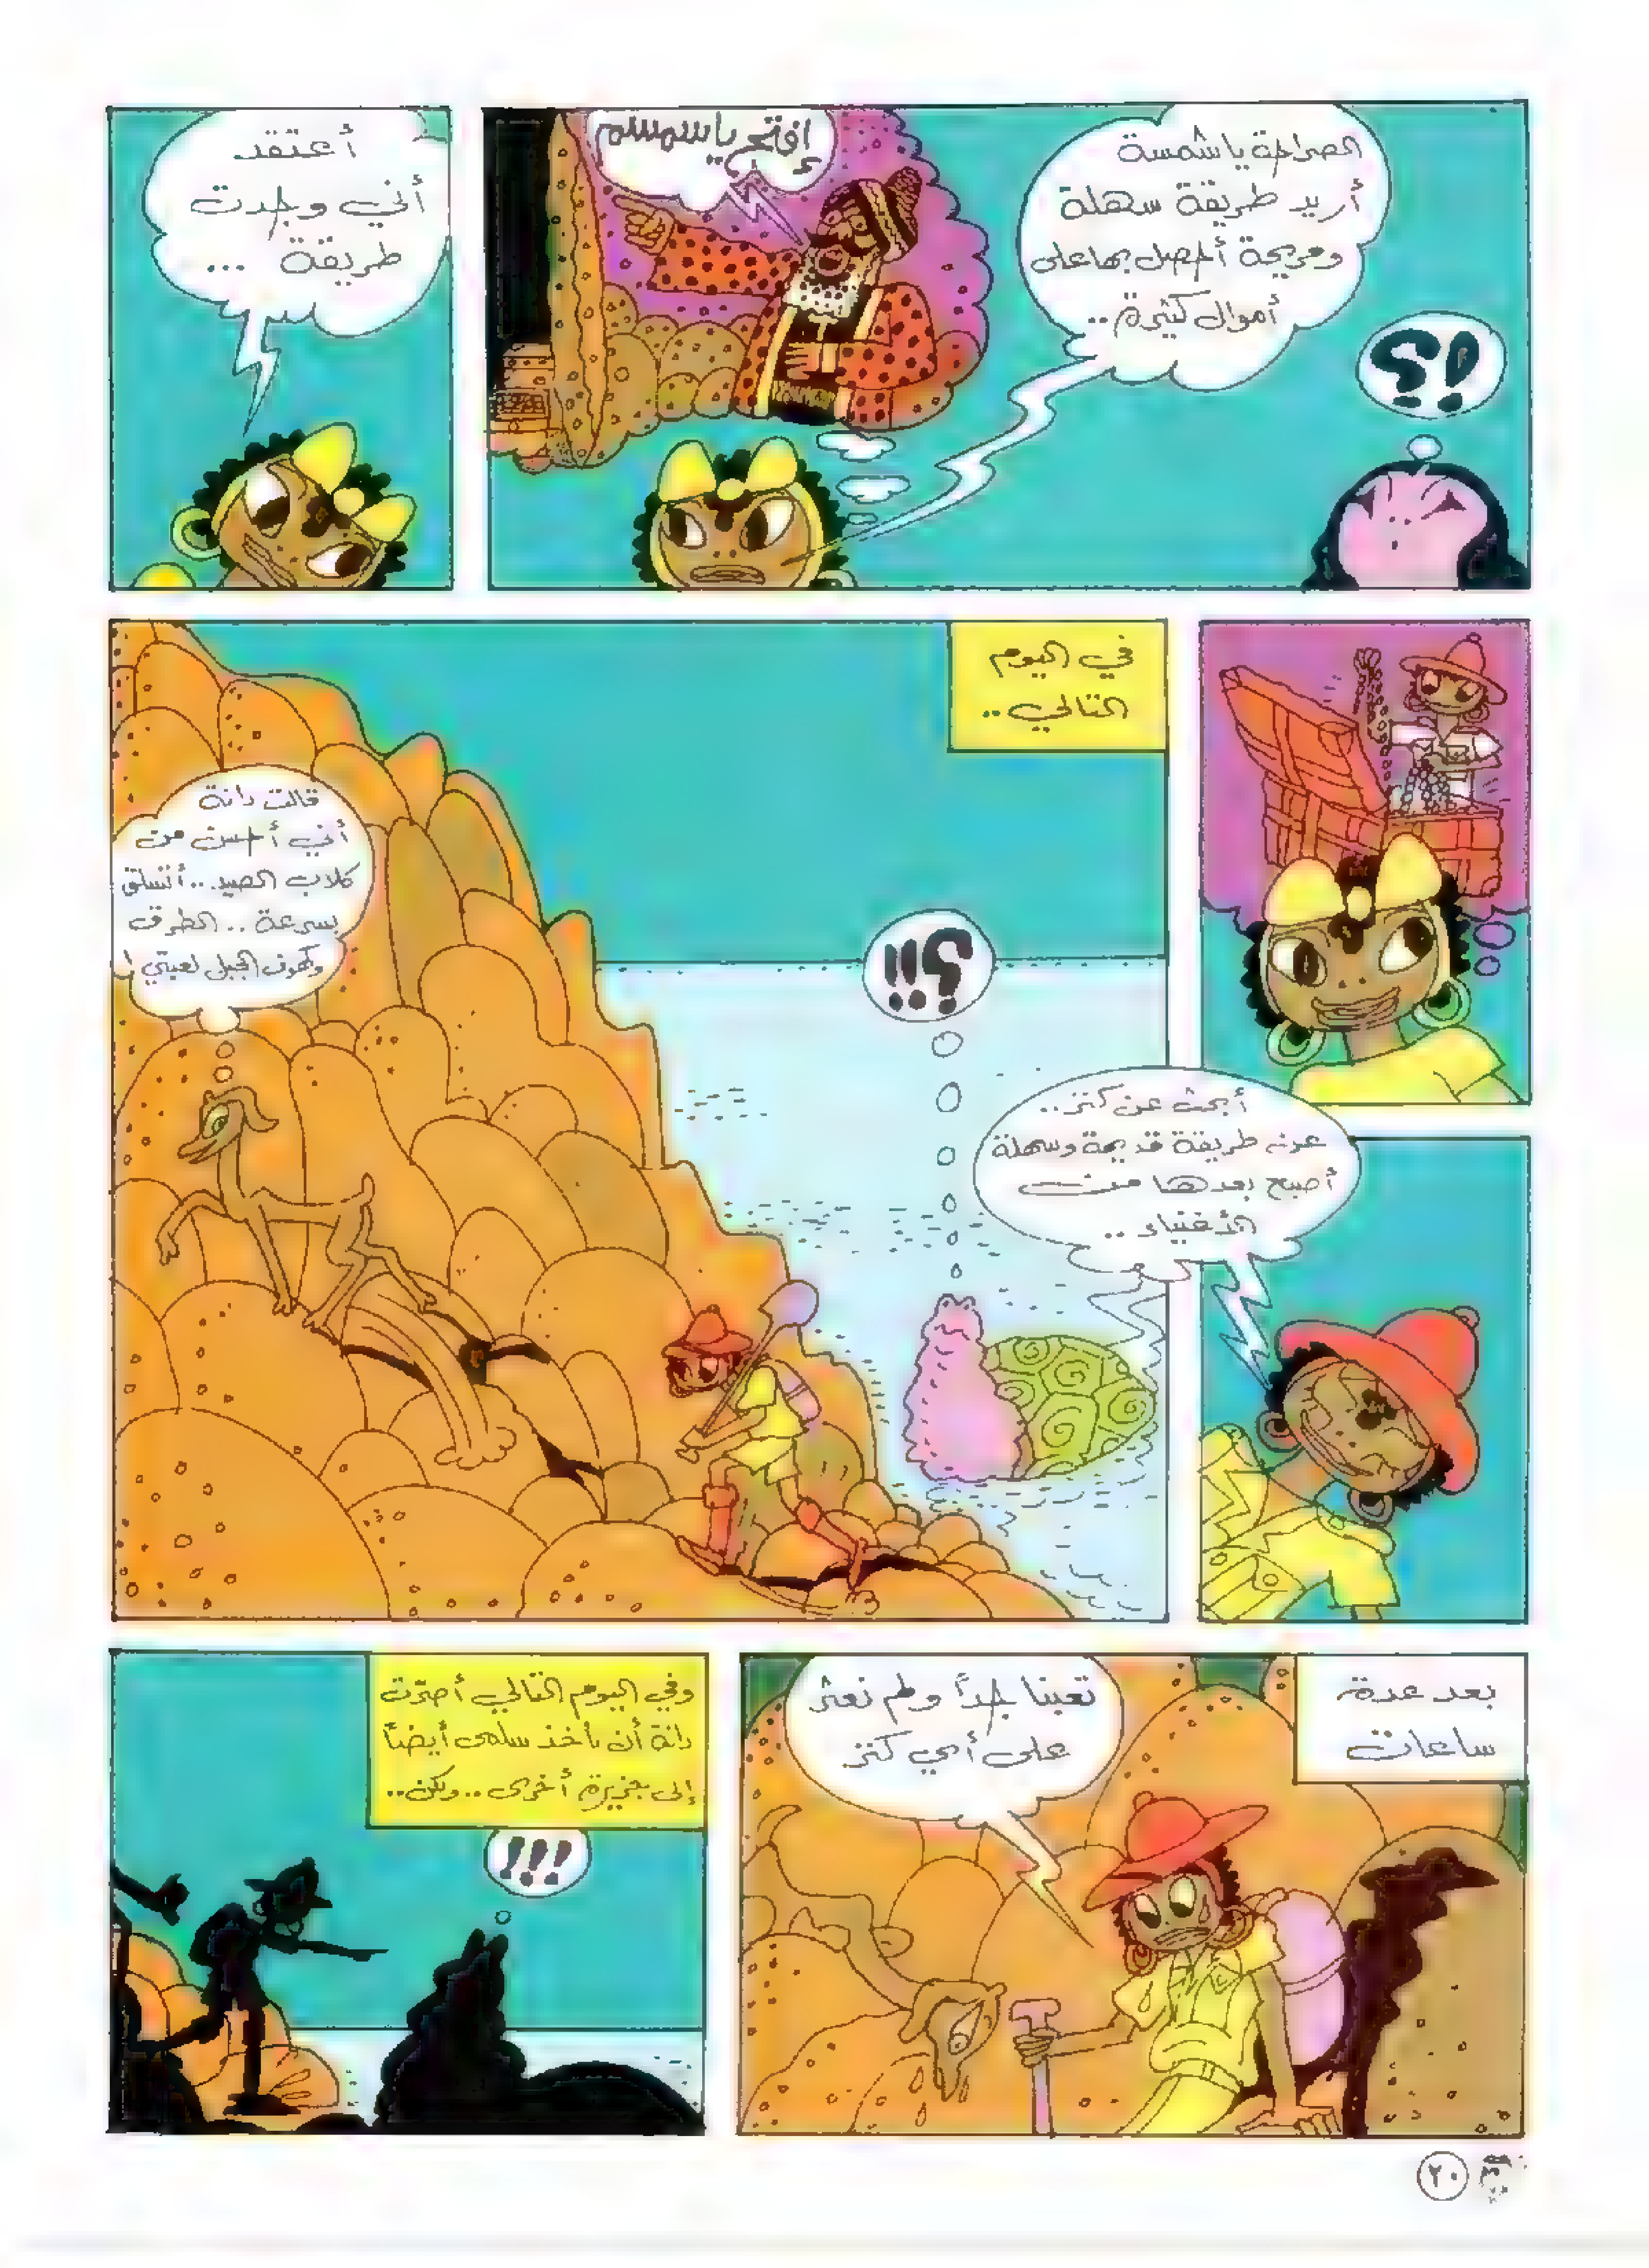 الصراحة يا شمسة
أريد طريقة سهلة
ومريحة أحصل بها على
أموال كثيرة..
إفتح يا سمسم
!؟
أعتقد
أني وجدت
طريقة ...
في اليوم
التالي ..
أبحث عن كنز..
عن طريقة قديمة وسهلة
أصبح بعدها من
الأغنياء ..
؟!!!
قالت دانة
أني أحسن من
كلاب الصيد.. أتسلق
بسرعة .. الطرق
وكهوف الجبل لعبتي !
بعد عدة
ساعات
تعبنا جداً ولم نعثر
على أي كنز
وفي اليوم التالي أصرّت
دانة أن تأخذ سلمى أيضاً
إلى جزيرة أخرى .. ولكن..
!!!
٢٠